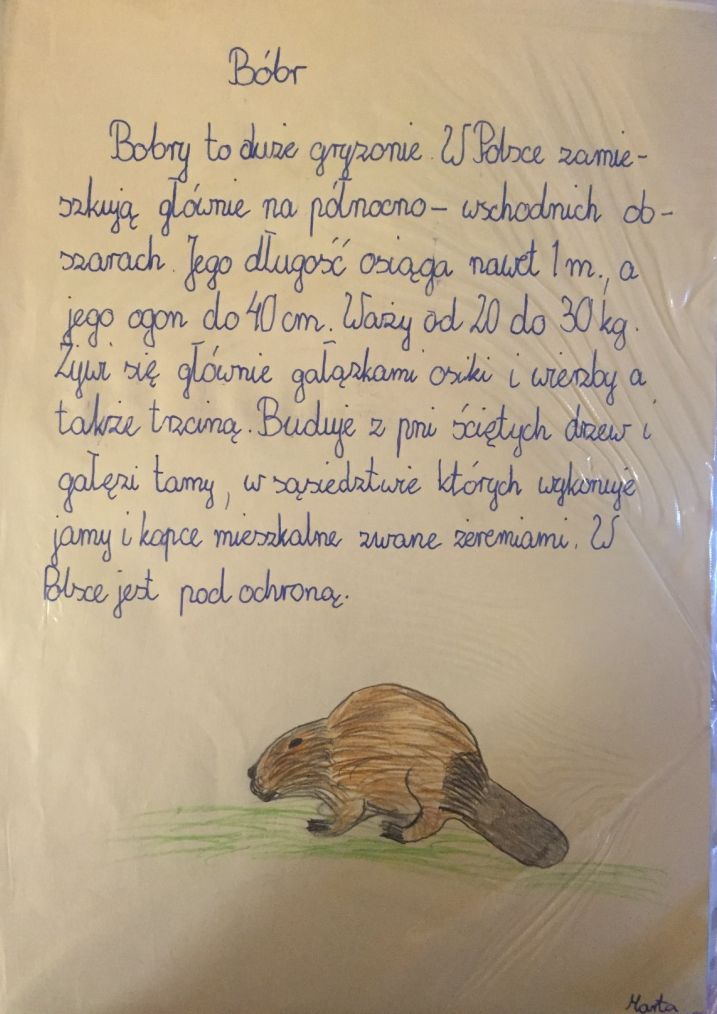 Bóbr
Bobry to duże gryzonie. W Polsce zamie-
szkują głównie na północno - wschodnich ob-
szarach. Jego długość osiąga nawet 1 m., a
jego ogon do 40 cm. Waży od 20 do 30 kg.
Żywi się głównie gałązkami osiki i wierzby a
także trzciną. Buduje z pni ściętych drzew i
gałęzi tamy, w sąsiedztwie których wykonuje
jamy i kopce mieszkalne zwane żeremiami. W
Polsce jest pod ochroną.
Marta